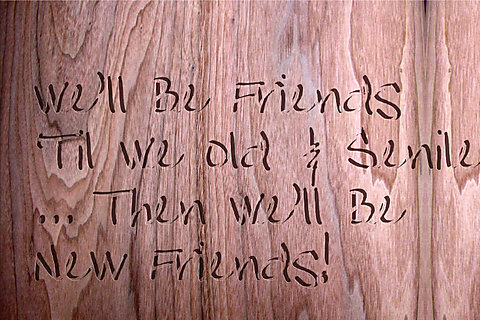 We'll Be Friends
'Til we old & Senile
... Then We'll Be
New Friends!